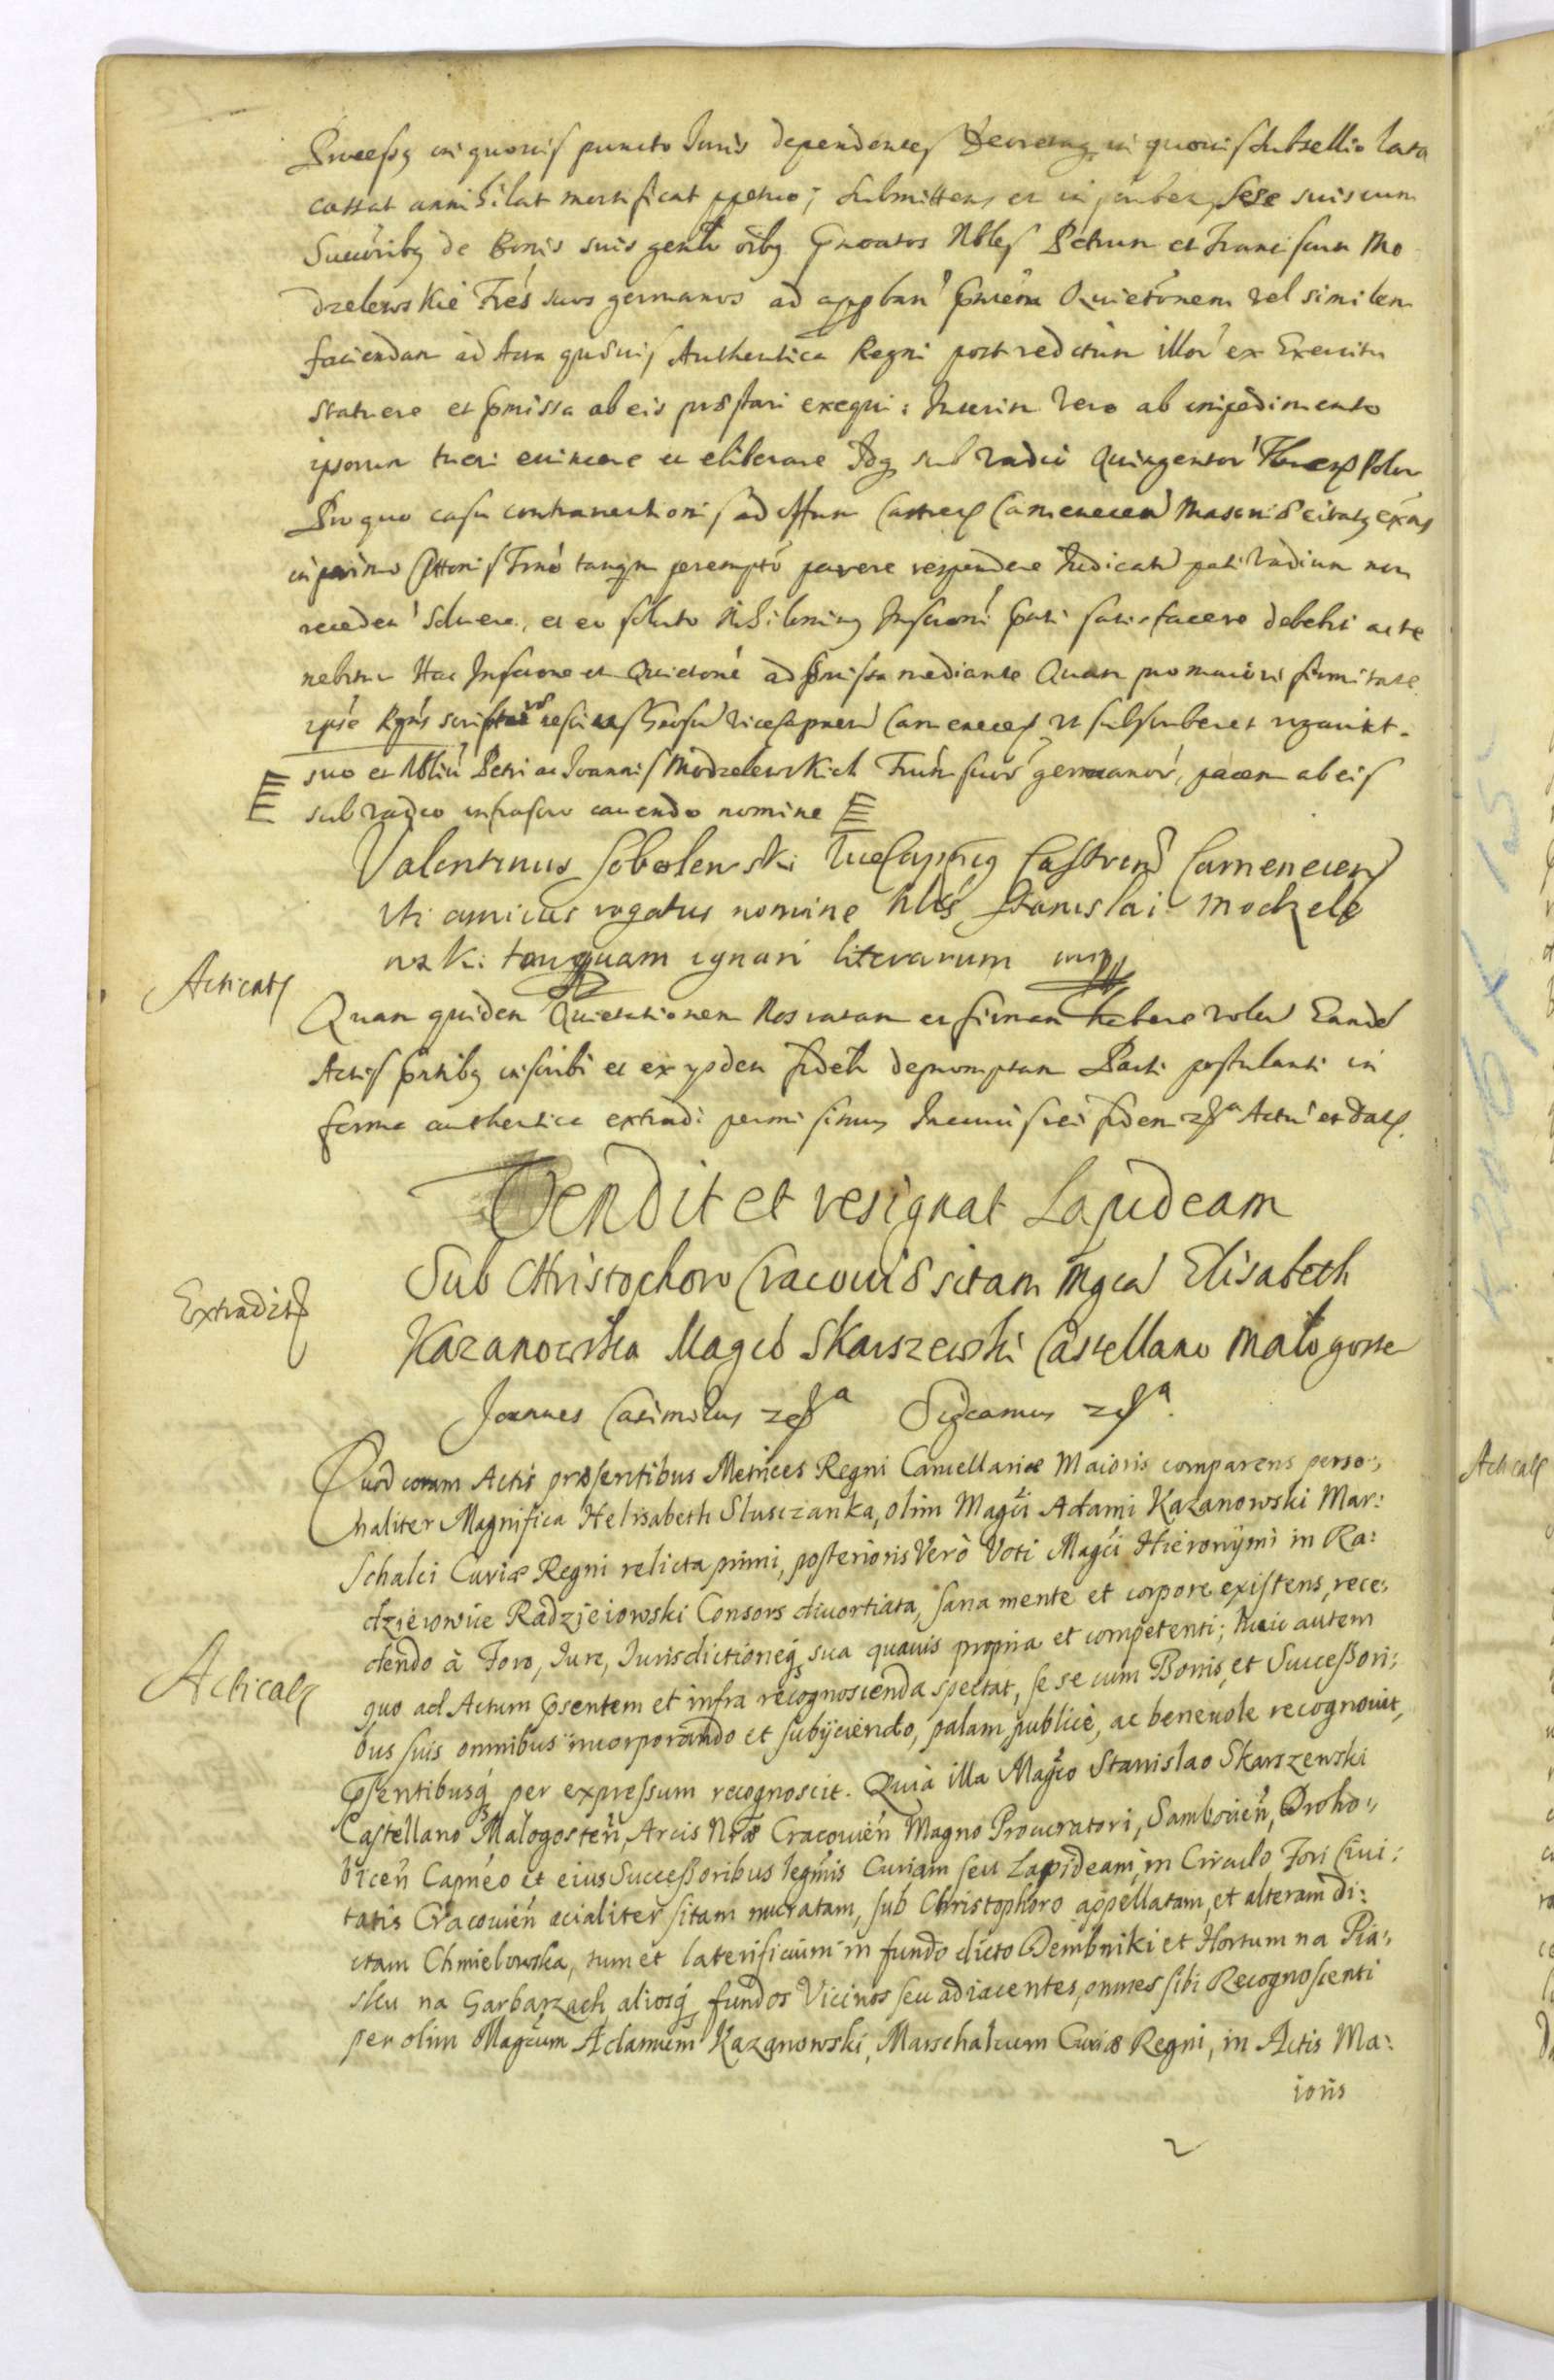 Processus in quovis puncto Iuris dependentes Decretaque in quovis Subsellio lata
cassat annihilat mortificat perpetuo; submittens et inscribens sese suis cum
Successoribus de Bonis suis generaliter omnibus praenatos Nobiles Petrum et Franciscum Mo
dzelewskie Fratres suos germanos ad approbandam praesentem Quietationem vel similem
faciendam ad Acta quaevis Authentica Regni post reditum illorum ex Exercitu
statuere et praemissa ab eis praestari exequi: Interim vero ab impedimento
ipsorum tueri evincere et eliberare Idque sub vadio Quingentorum Polon
Pro quo casu contraventionis ad Officium Castren Camenecen Masoviae citatus extunc
in primo Citationis Termino tanquam peremptorio parere respondere Iudicatum pati vadium non
receden solvere, et eo soluto Nihilominus Inscriptioni praesenti satisfacere debebit ac te
nebitur Hac Inscriptione et Quietatione ad praemissa mediante Quam pro maiori firmitate
ipse Recognoscens scripturae nescius Vicecapitaneum Camenecen ut subscriberet rogavit
suo et Nobilium Petri ac Joannis Modzelewskich Fratrum suorum germanorum, pacem ab eis
sub vadio infrascripto cavendo nomine
Valentinus Sobolewski Vicecapitneus Castren Camenecen
Uti amicus rogatus nomine Nblis Stanislai Modzele
wski tanquam ignari literarum mp
Acticat
Quam quidem Quietationem Nos ratam et firmam habere volen Eande
Actis pntibus inscribi et ex ijsdem fideli depromptam Parti postulanti in
forma authentica extradi permisimus In cuius rei fidem etca Actum et dat
Vendit et resignat Lapideam
Sub Christophoro Cracoviæ sitam Mgca Elisabeth
Extradit
Kazanowska Magco Skarszewski Castellano Małogosten
Joannes Casimirus etca Significamus etca
Quod coram Actis præsentibus Metrices Regni Cancellariæ Maioris comparens perso:
naliter Magnifica Helisabeth Slusczanka, olim Magci Adami Kazanowski Mar:
schalci Curiæ Regni relicta primi, posterioris Verò Voti Magci Hieronymi in Ra:
dzieiowice Radzieiowski Consors divortiata, sana mente et corpore existens, rece:
dendo à Foro, Jure, Jurisdictioneq sua quavis propria et competenti; huic autem
Acticat
quo ad Actum psentem et infra recognoscenda spectat, se se cum Bonis, et Successori:
bus suis omnibus incorporando et subijciendo, palam publicè, ac benevole recognovit,
psentibusq per expressum recognoscit. Quia illa Magco Stanislao Skarszewski
Castellano Małogosteñ, Arcis Nræ Cracovieñ Magno Procuratori, Samborieñ, Droho:
biceñ Capneo et eius Successoribus legmis Curiam seu Lapideam, in Circulo Fori Civi:
tatis Cracovieñ acialiter sitam muratam, sub Christophoro appellatam, et alteram di:
ctam Chmielowska, tum et laterificium in fundo dicto Dembniki et Hortum na Pia:
sku na Garbarzach aliosq fundos Vicinos seu adiacentes, omnes sibi Recognoscenti
per olim Magcum Adamum Kazanowski, Marschalcum Curiæ Regni, in Actis Ma:
ioris